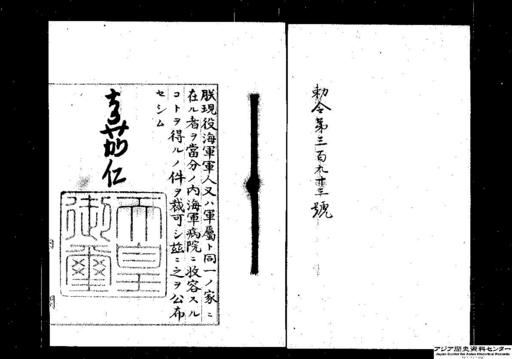 勅令第三百九十三號
朕現役海軍軍人又ハ軍屬ト同一ノ家ニ
在ル者ヲ當分ノ内海軍病院ニ收容スル
コトヲ得ルノ件ヲ裁可シ茲ニ之ヲ公布
セシム
嘉仁
天皇
御璽
アジア歴史資料センター
Japan Center for Asian Historical Records